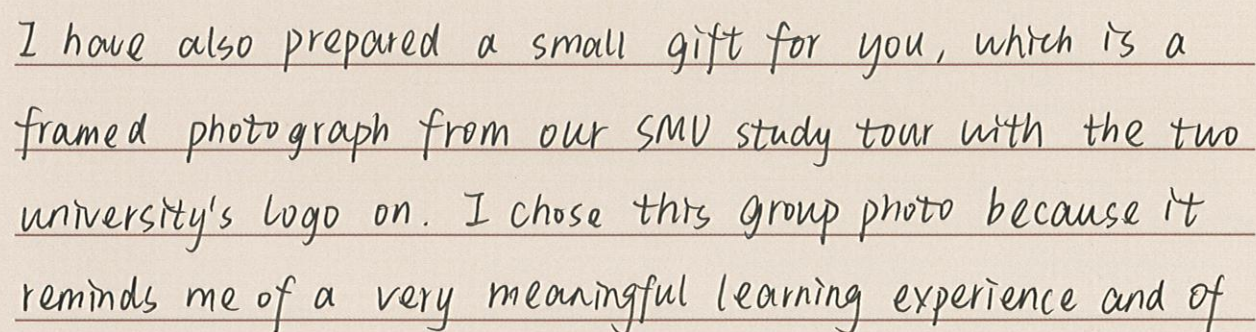 I have also prepared a small gift for you, which is a
framed photograph from our SMU study tour with the two
university's logo on. I chose this group photo because it
reminds me of a very meaningful learning experience and of